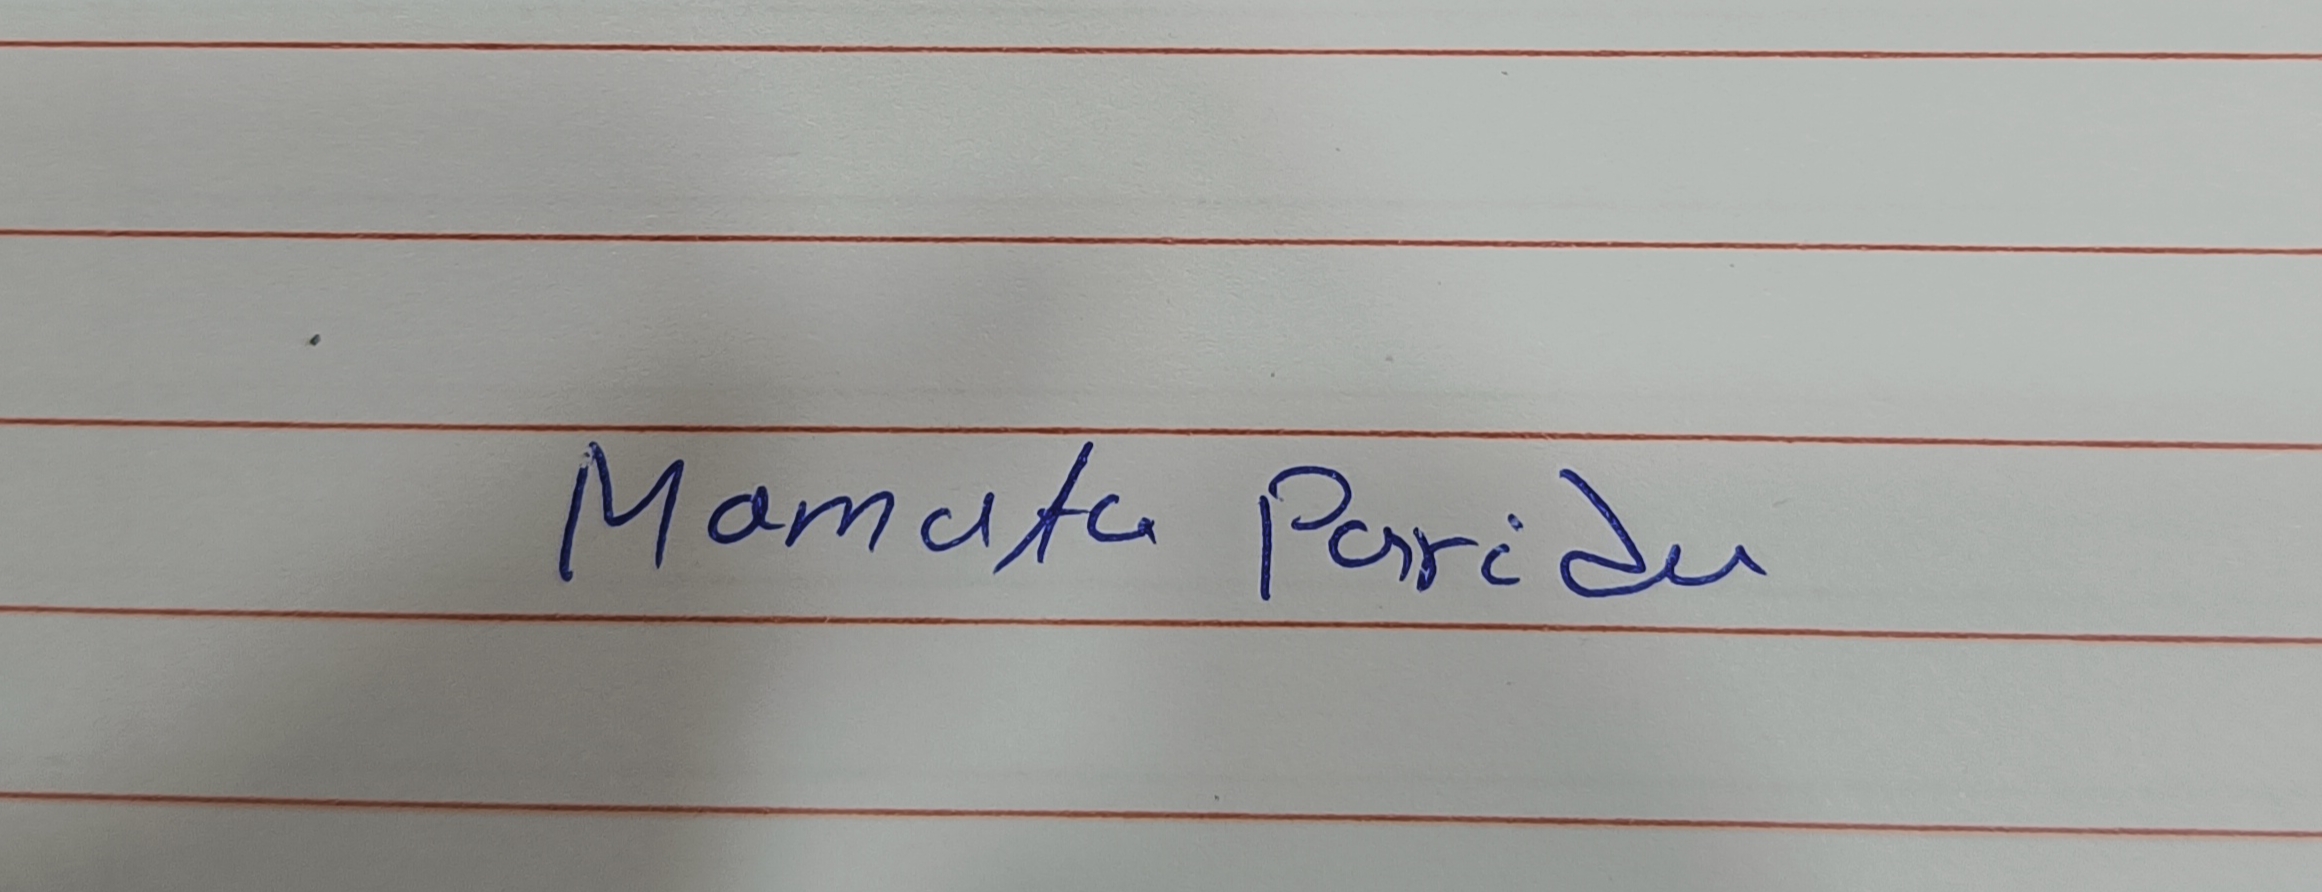 Mamata Parida